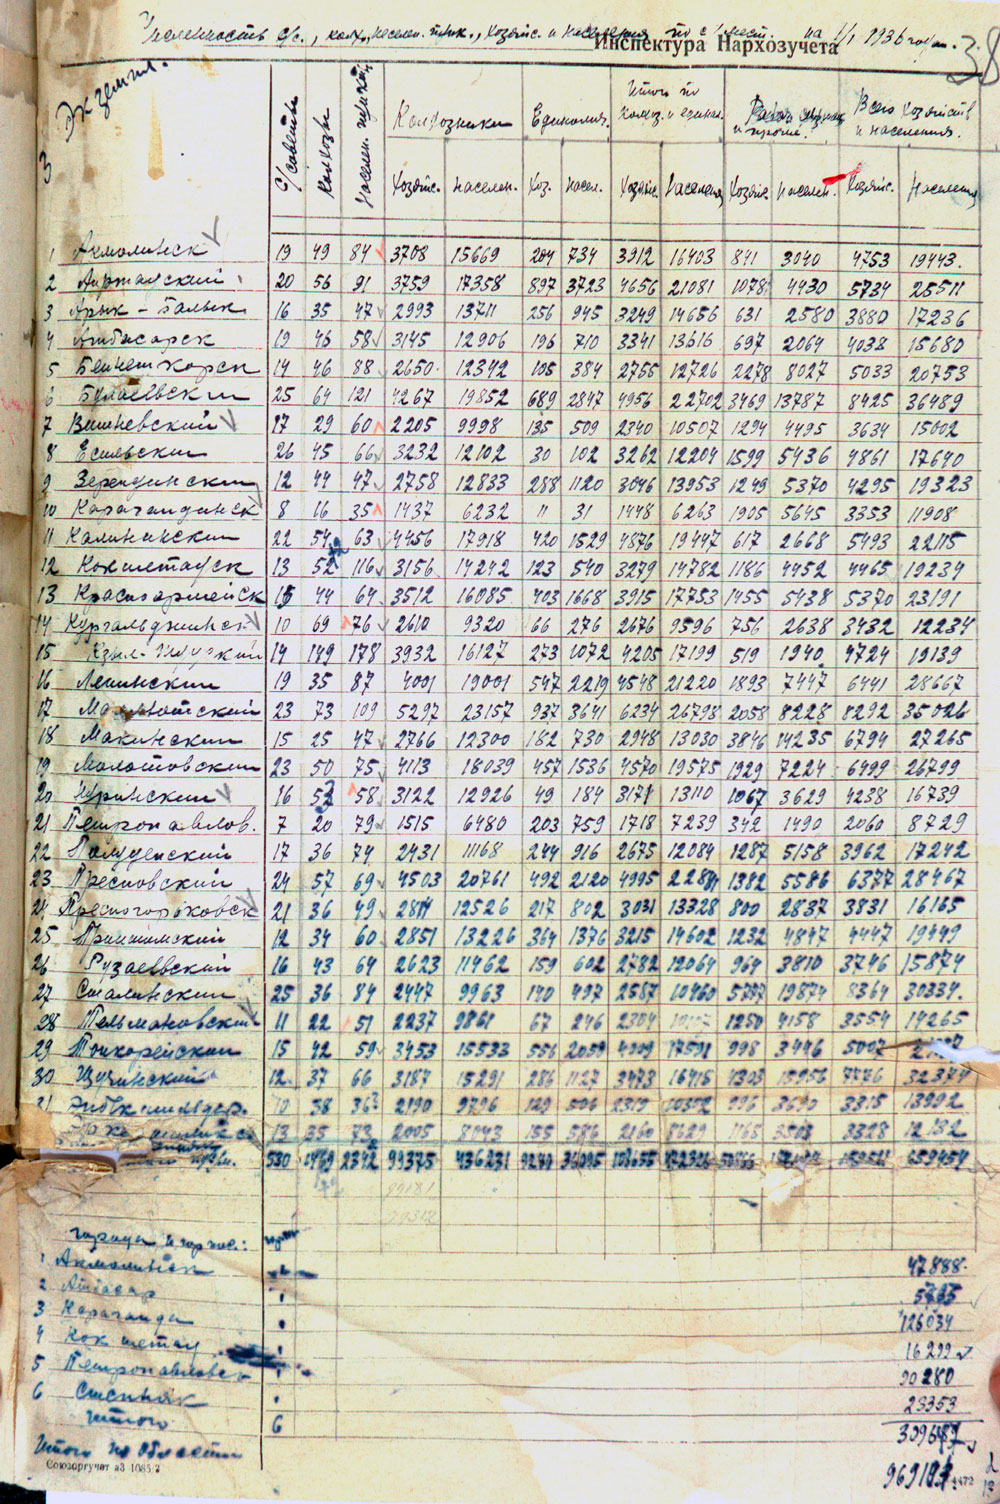 Численность с/с., колх., населен. пунк., хозяйс. и населения на 1/I 1936 года.
Инспектура Нархозучета
38
Экземпл.
3
с/советы Колхозы Населен. пункт. Колхозники Единолич. Итого по колхоз. и единол. и прочие. Всего хозяйств и населения.
Хозяйс. Населен. Хоз. Насел. Хозяйс. Населения Хозяйс. Населен. Хозяйс. Населения
1 Акмолинск 19 49 84 3708 15669 204 734 3912 16403 841 3040 4753 19443.
2 Айртауский 20 56 91 3759 17358 897 3723 4656 21081 1078 4430 5734 25511
3 Арык-Балык 16 35 47 2993 13711 256 945 3249 14656 631 2580 3880 17236
4 Атбасарск 19 46 58 3145 12906 196 710 3341 13616 697 2064 4038 15680
5 Бейнеткорск 14 46 88 2650 12342 105 384 2755 12726 2278 8027 5033 20753
6 Булаевский 25 64 121 4267 19852 689 2847 4956 22702 3469 13787 8425 36489
7 Вишневский 17 29 60 2205 9998 135 509 2340 10507 1294 4495 3634 15002
8 Есильский 26 45 66 3232 12102 30 102 3262 12204 1599 5436 4861 17640
9 Зерендинский 12 44 47 2758 12833 288 1120 3046 13953 1249 5370 4295 19323
10 Карагандинск 8 16 35 1437 6232 11 31 1448 6263 1905 5645 3353 11908
11 Калининский 22 54 63 4456 17918 420 1529 4876 19447 617 2668 5493 22115
12 Кокчетауск 13 52 116 3156 14242 123 540 3279 14782 1186 4452 4465 19234
13 Красноармейск 15 44 64 3512 16085 403 1668 3915 17753 1455 5438 5370 23191
14 Кургальджинск 10 69 76 2610 9320 66 276 2676 9596 756 2638 3432 12234
15 Кзыл-Туский 14 149 178 3932 16127 273 1072 4205 17199 519 1940 4724 19139
16 Ленинский 19 35 87 4001 19001 547 2219 4548 21220 1893 7447 6441 28667
17 Мамлютский 23 73 109 5297 23157 937 3641 6234 26798 2058 8228 8292 35026
18 Макинский 15 25 47 2766 12300 182 730 2948 13030 3846 14235 6794 27265
19 Молотовский 23 50 75 4113 18039 457 1536 4570 19575 1929 7224 6499 26799
20 Нуринский 16 52 58 3122 12926 49 184 3171 13110 1067 3629 4238 16739
21 Петропавлов. 7 20 79 1515 6480 203 759 1718 7239 342 1490 2060 8729
22 Полуденский 17 36 74 2431 11168 244 916 2675 12084 1287 5158 3962 17242
23 Пресновский 24 57 69 4503 20761 492 2120 4995 22881 1382 5586 6377 28467
24 Пресногорьковск 21 36 49 2814 12526 217 802 3031 13328 800 2837 3831 16165
25 Приишимский 12 34 60 2851 13226 364 1376 3215 14602 1232 4847 4447 19449
26 Рузаевский 16 43 64 2623 11462 159 602 2782 12064 964 3810 3746 15874
27 Сталинский 25 36 84 2447 9963 140 497 2587 10460 5777 19874 8364 30334.
28 Тельмановский 11 22 51 2237 9861 67 246 2304 1250 4158 3554 14265
29 Тонкерейский 15 42 59 3453 15533 556 2058 4009 17591 998 3446 5007
30 Щучинский 12 37 66 3187 15291 286 1127 3473 16418 4303 15956 7776 32374
31 Энбекшильдер. 10 38 36 2190 9796 129 506 2319 10302 996 3690 3315 13992
13 35 73 2005 8043 155 586 2160 8629 1165 3503 3328 12132
530 1469 2342 99375 436231 659454
99181
99312
города и гор. пос.:
1 Акмолинск 47888.
2 Атбасар
3 Караганда 126034
4 Кокчетау 16292
5 Петропавловск 90280
6 Степняк 23353
Итого 6 309687
Итого по области
Союзоргучет аЗ 1085.2
4472